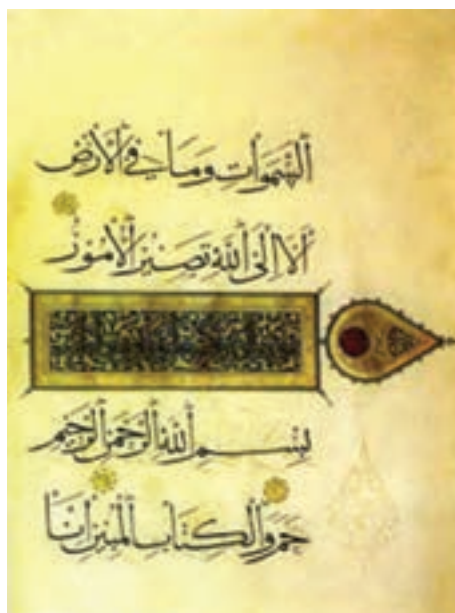 السموات وما في الأرض
ألا إلى الله تصير الأمور
بسم الله الرحمن الرحيم
حم والكتاب المبين إنا